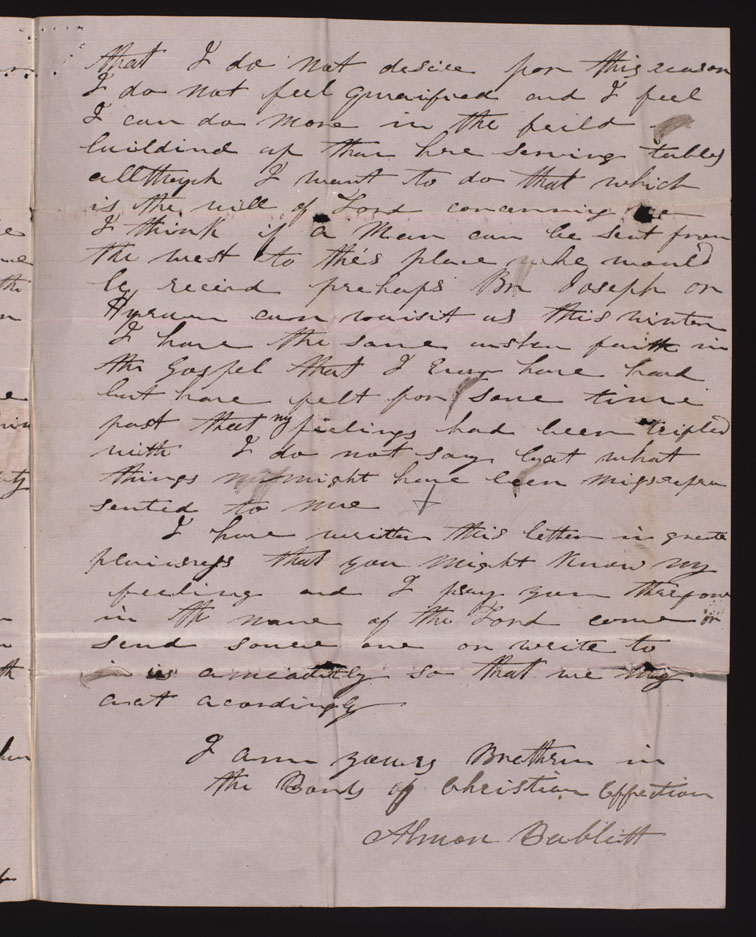 that I do not desire for this reason
I do not feel quaified and I feel
I can do more in the feild
buildind up than here serving tables
allthough I want to do that which
is the will of Lord concerning me
I think if a Man can be sent from
the west to this place who would
be receied prehaps Br Joseph or
Hyrum can visit us this winter
I have the same faith in
the Gospel that I Ever have had
but have felt for some time
past that my feelings had been tripled
with I do not say but what
things might have been misrepre
sented to me
I have written this letter in greate
plainness that you might Know my
feeling and I pray you therfore
in the name of the Lord come or
send some one or write to
us so that we may
acat acordingly
I am yours Brethren in
the Bonds of Christian Effection
Almon Babbitt